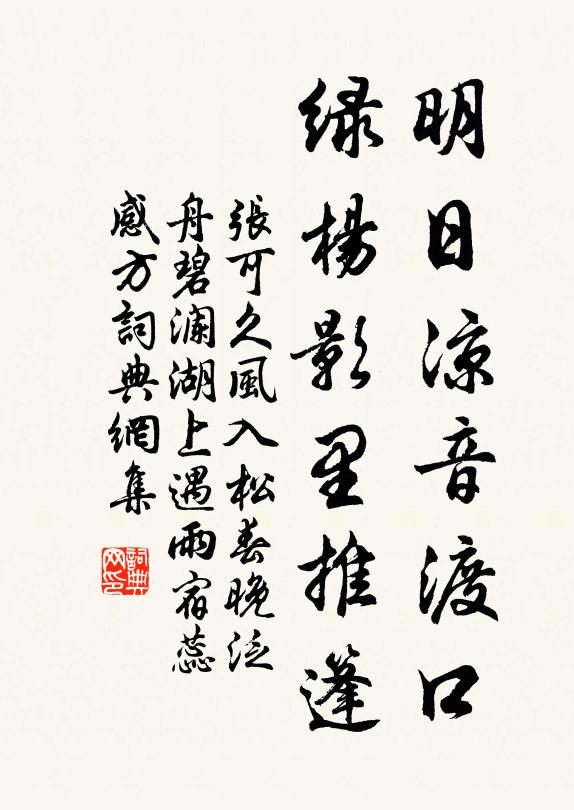 明日凉音渡口
緑楊影里推蓬
張可久風入松春晚泛
舟碧瀾湖上遇雨宿蕊
感方詞典網集
詞典
网印